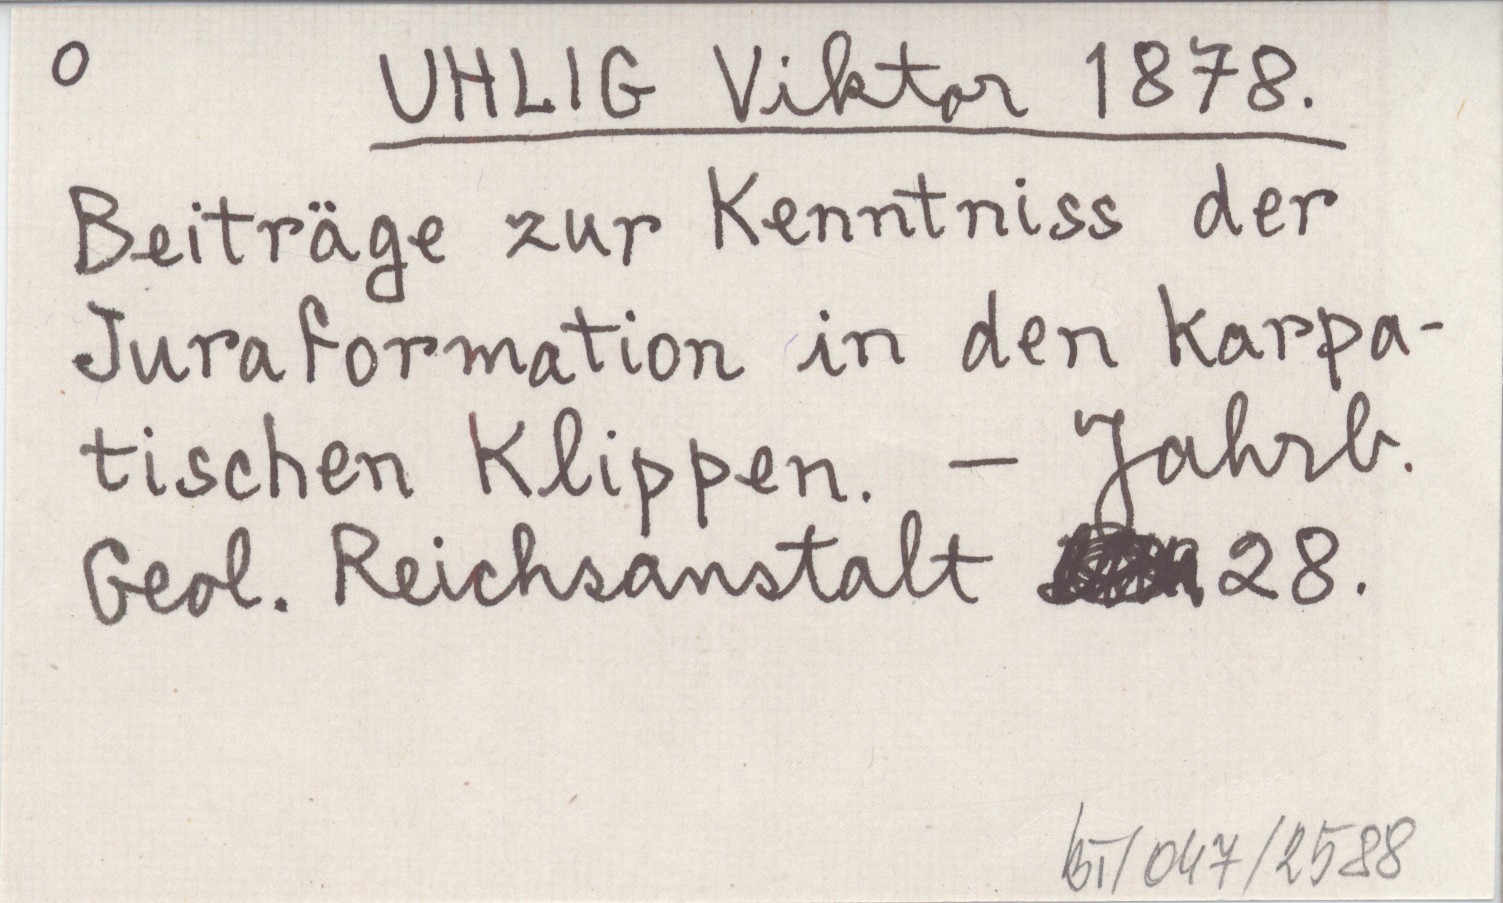 O UHLIG Viktor 1878.
Beiträge zur Kenntniss der
Juraformation in den Karpa-
tischen Klippen. — Jahrb.
Geol. Reichsanstalt 28.
BT/047/2588